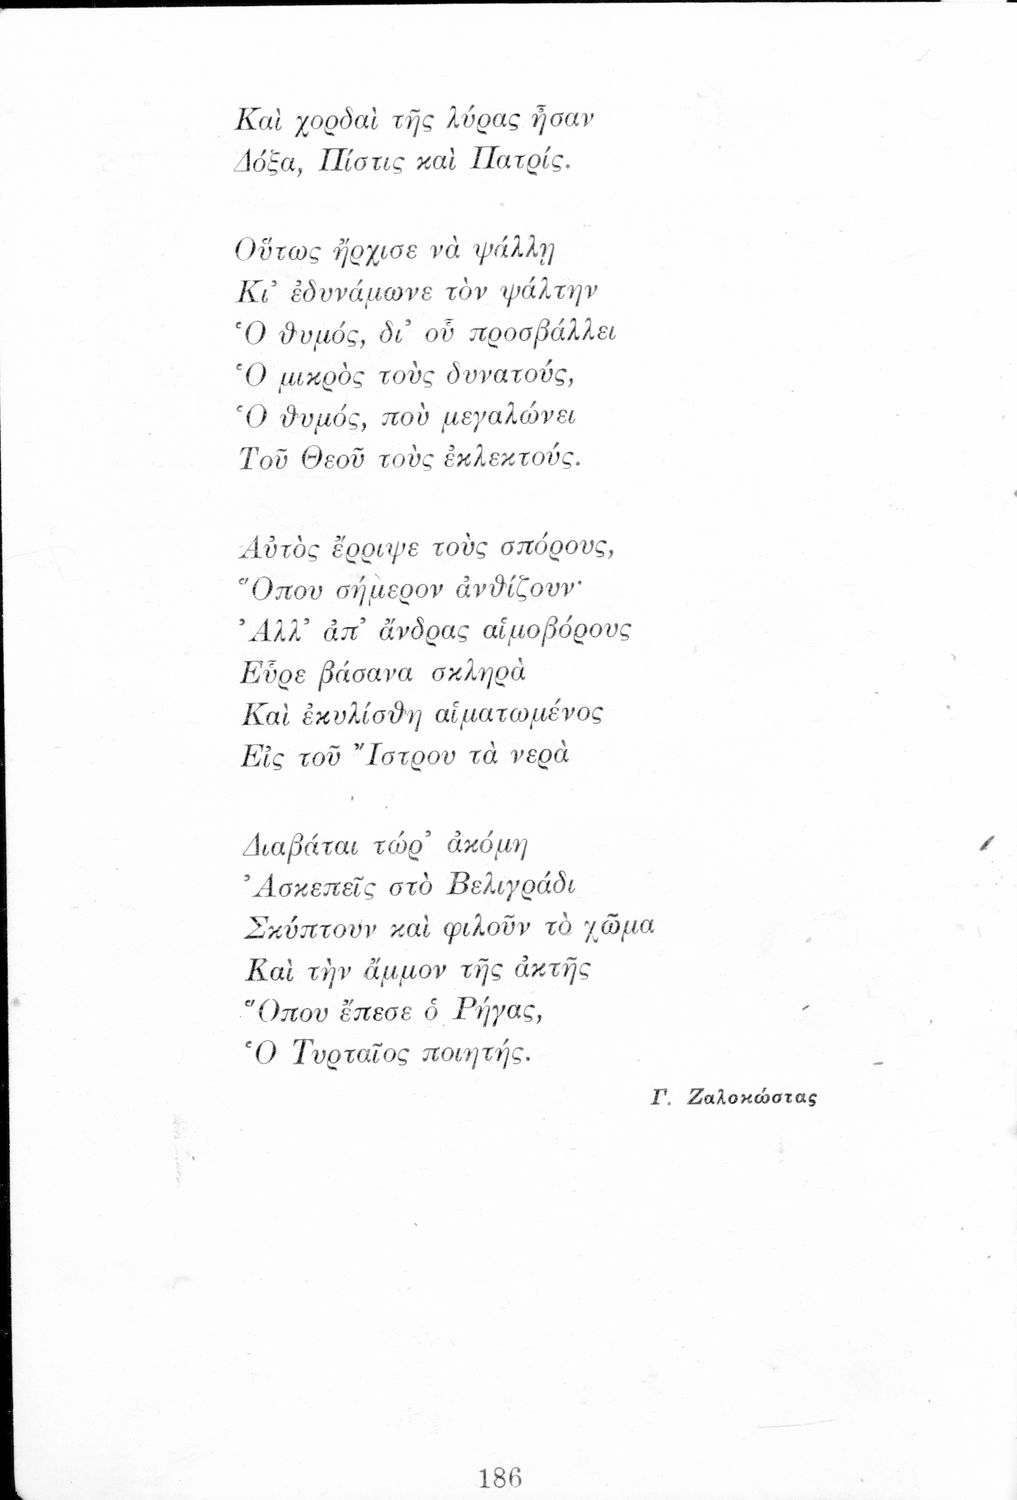 Καὶ χορδαὶ τῆς λύρας ἦσαν
Δόξα, Πίστις καὶ Πατρίς.
Οὕτως ἤρχισε νὰ ψάλλῃ
Κι’ ἐδυνάμωνε τὸν ψάλτην
Ὁ θυμός, δι’ οὗ προσβάλλει
Ὁ μικρὸς τοὺς δυνατούς,
Ὁ θυμός, ποὺ μεγαλώνει
Τοῦ Θεοῦ τοὺς ἐκλεκτούς.
Αὐτὸς ἔρριψε τοὺς σπόρους,
Ὅπου σήμερον ἀνθίζουν·
Ἀλλ’ ἀπ’ ἄνδρας αἱμοβόρους
Εὗρε βάσανα σκληρὰ
Καὶ ἐκυλίσθη αἱματωμένος
Εἰς τοῦ Ἴστρου τὰ νερὰ
Διαβάται τώρ’ ἀκόμη
Ἀσκεπεῖς στὸ Βελιγράδι
Σκύπτουν καὶ φιλοῦν τὸ χῶμα
Καὶ τὴν ἄμμον τῆς ἀκτῆς
Ὅπου ἔπεσε ὁ Ρήγας,
Ὁ Τυρταῖος ποιητής.
Γ. Ζαλοκώστας
186